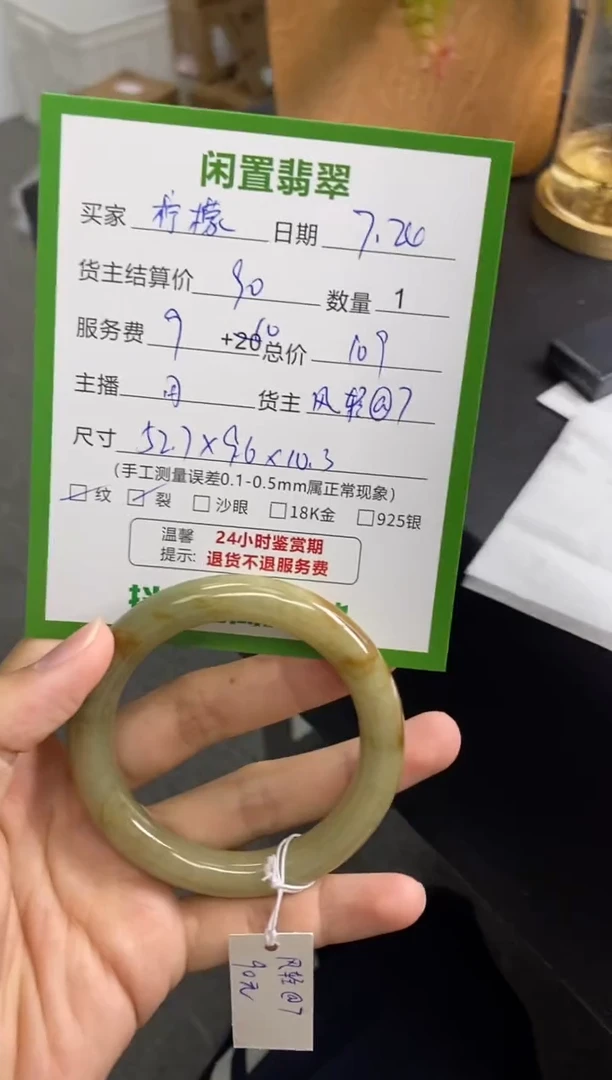 闲置翡翠
买家 柠檬 日期 7.26
货主结算价 90 数量 1
服务费 9 +20 10 总价 109
主播 货主 风轻@7
尺寸 52.7×9.6×10.3
(手工测量误差0.1-0.5mm属正常现象)
纹 裂 沙眼 18K金 925银
温馨提示: 24小时鉴赏期
退货不退服务费
风轻@7
90元